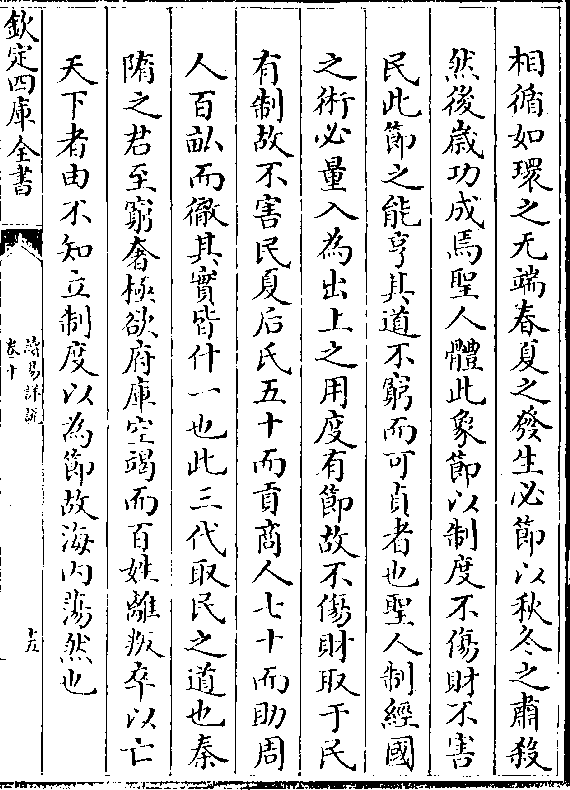 相循如環之无端春夏之發生必節以秋冬之肅殺
然後歲功成焉聖人體此象節以制度不傷財不害
民此節之能亨其道不窮而可貞者也聖人制經國
之術必量入為出上之用度有節故不傷財取于民
有制故不害民夏后氏五十而貢商人七十而助周
人百畝而徹其實皆什一也此三代取民之道也秦
隋之君至窮奢極欲府庫空竭而百姓離叛卒以亡
天下者由不知立制度以為節故海内蕩然也
欽定四庫全書
讀易詳說
卷十
十五